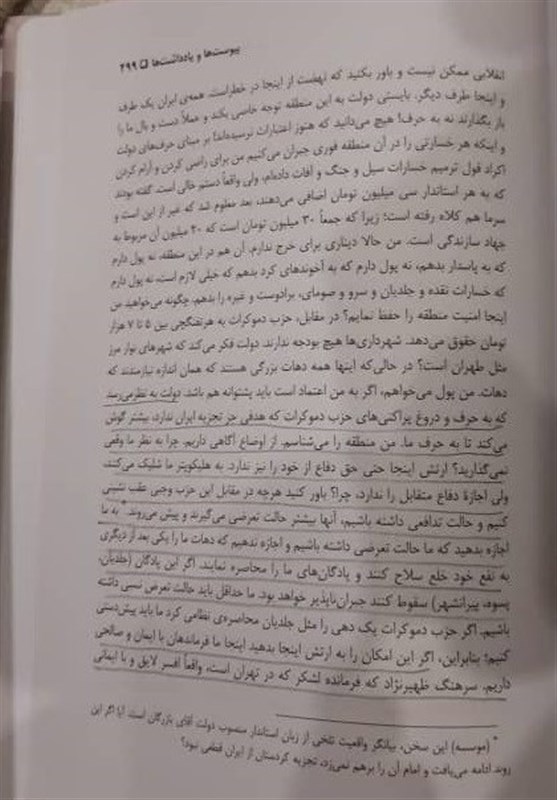 پیوست‌ها و یادداشت‌ها □ ۲۹۹
انقلابی ممکن نیست و باور بکنید که نهضت از اینجا در خطر است. همه‌ی ایران یک طرف
و اینجا طرف دیگر. بایستی دولت به این منطقه توجه خاصی بکند و عملاً دست و بال ما را
باز بگذارند نه به حرف! هیچ می‌دانید که هنوز اعتبارات نرسیده‌اند! بر مبنای حرف‌های دولت
و اینکه هر خسارتی را در آن منطقه فوری جبران می‌کنیم من برای راضی کردن و آرام کردن
اکراد قول ترمیم خسارات سیل و جنگ و آفات داده‌ام، ولی واقعاً دستم خالی است. گفته بودند
که به هر استاندار سی میلیون تومان اضافی می‌دهند، بعد معلوم شد که غیر از این است و
سرما هم کلاه رفته است؛ زیرا که جمعاً ۳۰ میلیون تومان است که ۲۰ میلیون آن مربوط به
جهاد سازندگی است. من حالا دیناری برای خرج ندارم. آن هم در این منطقه. نه پول دارم
که به پاسدار بدهم، نه پول دارم که به آخوندهای کرد بدهم که خیلی لازم است، نه پول دارم
که خسارات نقده و جلدیان و سرو و صومای، برادوست و غیره را بدهم. چگونه می‌خواهید من
اینجا امنیت منطقه را حفظ نمایم؟ در مقابل، حزب دموکرات به هر تفنگچی بین ۵ تا ۷ هزار
تومان حقوق می‌دهد. شهرداری‌ها هیچ بودجه ندارند. دولت فکر می‌کند که شهرهای نوار مرز
مثل طهران است؟ در حالی‌که اینها همه دهات بزرگی هستند که همان اندازه نیازمندند که
دهات. من پول می‌خواهم، اگر به من اعتماد است باید پشتوانه هم باشد. دولت به نظر می‌رسد
که به حرف و دروغ پراکنی‌های حزب دموکرات که هدفی جز تجزیه ایران ندارد، بیشتر گوش
می‌کند تا به حرف ما. من منطقه را می‌شناسم. از اوضاع آگاهی داریم. چرا به نظر ما وقعی
نمی‌گذارید؟ ارتش اینجا حتی حق دفاع از خود را نیز ندارد. به هلیکوپتر ما شلیک می‌کنند،
ولی اجازه‌ٔ دفاع متقابل را ندارد، چرا؟ باور کنید هرچه در مقابل این حزب وجبی عقب نشینی
کنیم و حالت تدافعی داشته باشیم، آنها بیشتر حالت تعرضی می‌گیرند و پیش می‌روند.* به ما
اجازه بدهید که ما حالت تعرضی داشته باشیم و اجازه ندهیم که دهات ما را یکی بعد از دیگری
به نفع خود خلع سلاح کنند و پادگان‌های ما را محاصره نمایند. اگر این پادگان (جلدیان،
پسوه، پیرانشهر) سقوط کنند جبران‌ناپذیر خواهد بود. ما حداقل باید حالت تعرض نسبی داشته
باشیم. اگر حزب دموکرات یک دهی را مثل جلدیان محاصره‌ی نظامی کرد ما باید پیش‌دستی
کنیم؛ بنابراین، اگر این امکان را به ارتش اینجا بدهید اینجا ما فرماندهان با ایمان و صالحی
داریم. سرهنگ ظهیرنژاد که فرمانده لشکر که در تهران است، واقعاً افسر لایق و با ایمانی
* (موسسه) این سخن، بیانگر واقعیت تلخی از زبان استاندار منصوب دولت آقای بازرگان است. آیا اگر این
روند ادامه می‌یافت و امام آن را برهم نمی‌زد، تجزیه کردستان از ایران قطعی نبود؟